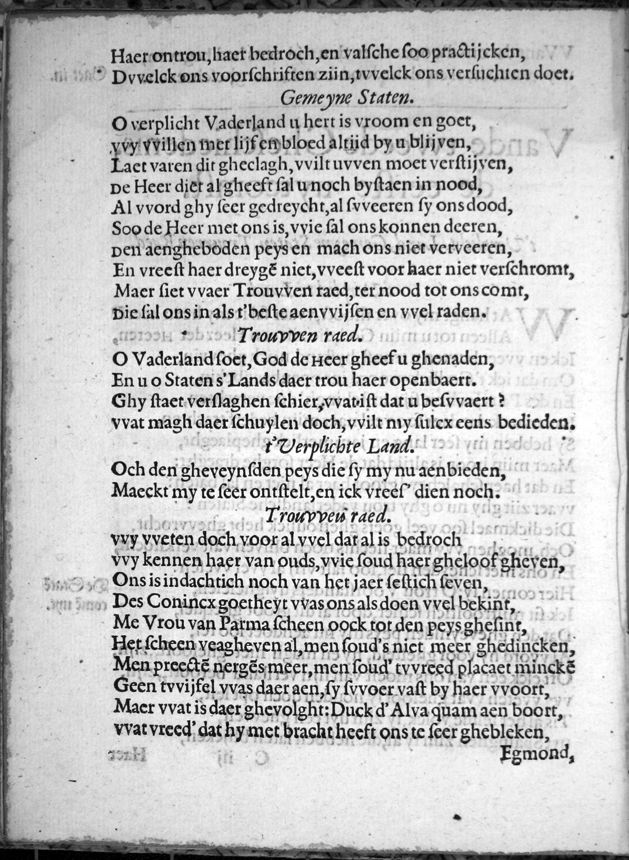 Haer ontrou, haer bedroch, en valsche soo practijcken,
Dvvelck ons voorschriften zijn, tvvelck ons versuchten doet.
Gemeyne Staten.
O verplicht Vaderland u hert is vroom en goet,
vvy vvillen met lijf en bloed altijd by u blijven,
Laet varen dit gheclagh, vvilt uvven moet verstijven,
De Heer diet al gheeft sal u noch bystaen in nood,
Al vvord ghy seer gedreycht, al svveeren sy ons dood,
Soo de Heer met ons is, vvie sal ons konnen deeren,
Den aengheboden peys en mach ons niet verveeren,
En vreest haer dreygẽ niet, vveest voor haer niet verschromt,
Maer siet vvaer Trouvven raed, ter nood tot ons comt,
Die sal ons in als t'beste aenvvijsen en vvel raden.
Trouvven raed.
O Vaderland soet, God de Heer gheef u ghenaden,
En u o Staten s'Lands daer trou haer openbaert.
Ghy staet verslaghen schier, vvat ist dat u besvvaert?
vvat magh daer schuylen doch, vvilt my sulcx eens bedieden.
t'Verplichte Land.
Och den gheveynsden peys die sy my nu aenbieden,
Maeckt my te seer ontstelt, en ick vrees' dien noch.
Trouvven raed.
vvy vveten doch voor al vvel dat al is bedroch
vvy kennen haer van ouds, vvie soud haer gheloof gheven,
Ons is indachtich noch van het jaer sestich seven,
Des Conincx goetheyt vvas ons als doen vvel bekint,
Me Vrou van Parma scheen oock tot den peys ghesint,
Het scheen veagheven al, men soud's niet meer ghedincken,
Men preectẽ nergẽs meer, men soud' tvvreed placaet minckẽ
Geen tvvijfel vvas daer aen, sy svvoer vast by haer vvoort,
Maer vvat is daer ghevolght: Duck d'Alva quam aen boort,
vvat vreed' dat hy met bracht heeft ons te seer ghebleken,
Egmond,